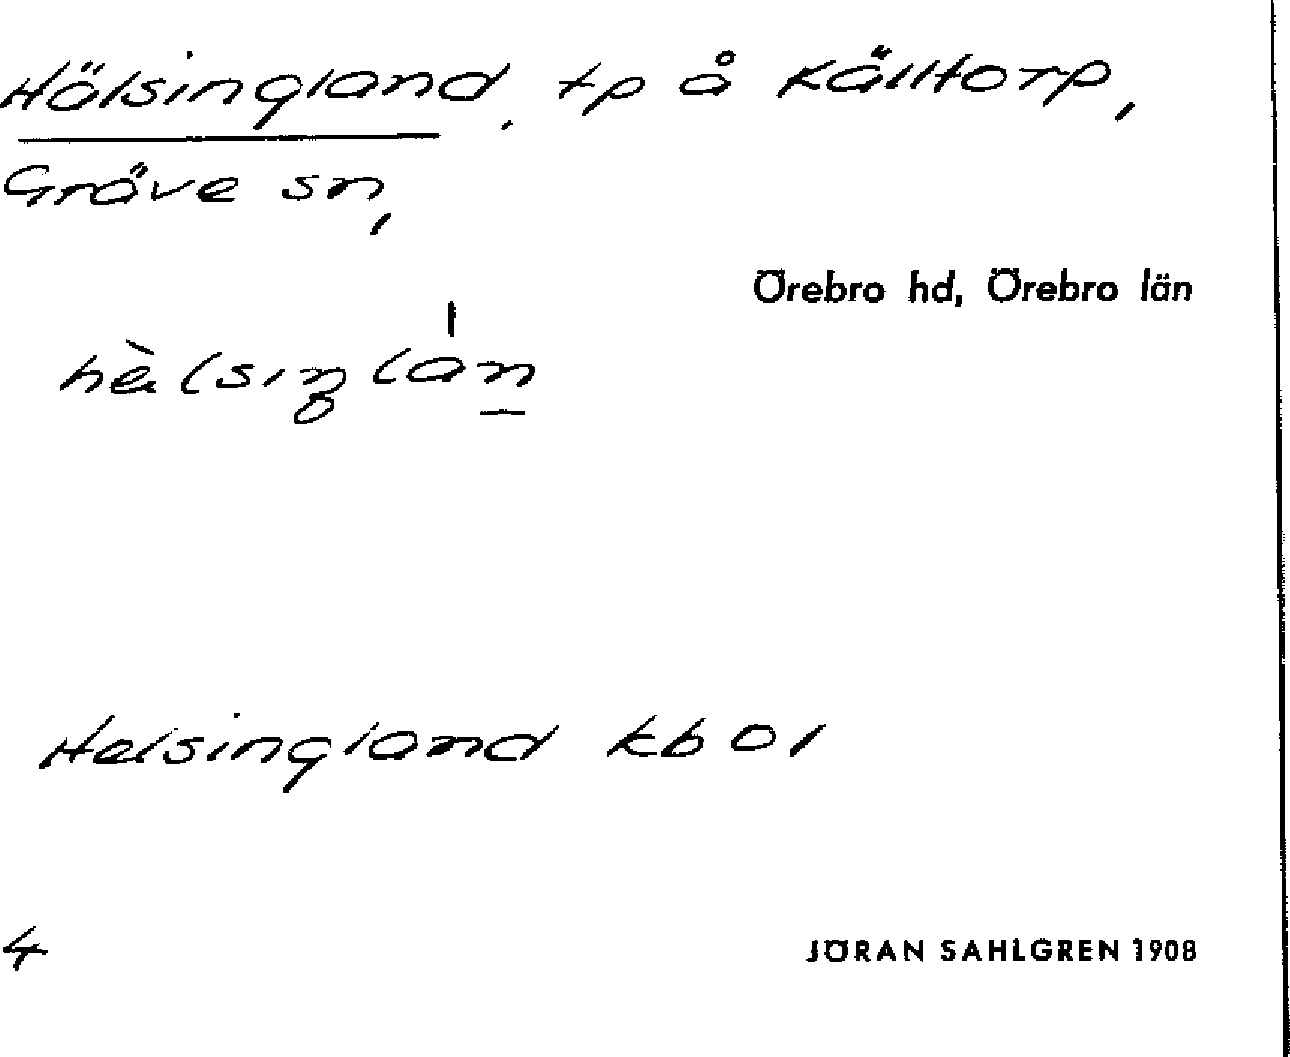 Hälsingland, tp å Källtorp,
Gräve sn,
Örebro hd, Örebro län
Helsingland kb 01
4
JÖRAN SAHLGREN 1908